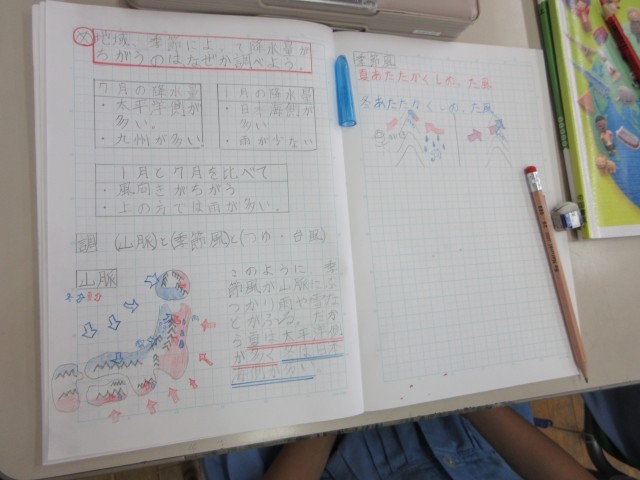 め
地域、季節によって降水量が
ちがうのはなぜか調べよう。
7月の降水量
・太平洋側が
多い。
・九州が多い
1月の降水量
・日本海側が
多い
・雨が少ない
1月と7月を比べて
・風向きがちがう
・上の方では雨が多い。
調 (山脈)と(季節風)と(つゆ・台風)
山脈
このように、季
節風が山脈にぶ
つかり雨や雪な
どがふる。だか
ら夏は太平洋側
が多く
季節風
夏あたたかくしめった風
冬あたたかくしめった風